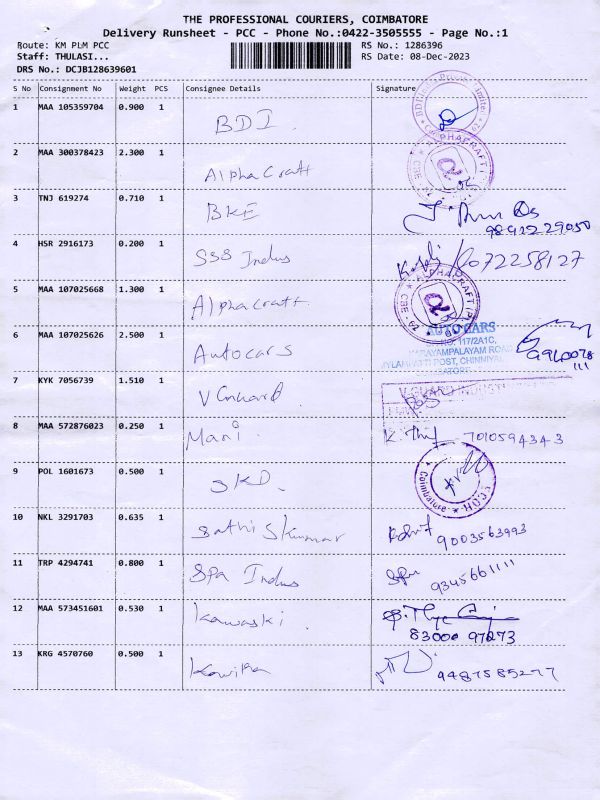 THE PROFESSIONAL COURIERS, COIMBATORE
Delivery Runsheet - PCC - Phone No.:0422-3505555 - Page No.:1
Route: KM PLM PCC RS No.: 1286396
Staff: THULASI... RS Date: 08-Dec-2023
DRS No.: DCJB128639601
S No Consignment No Weight PCS Consignee Details Signature
1 MAA 105359704 0.900 1 BDI
2 MAA 300378423 2.300 1 Alpha Craft
ALPHACRAFT
3 TNJ 619274 0.710 1 BKE
4 HSR 2916173 0.200 1 SSS Indus
5 MAA 107025668 1.300 1 Alphacraft
ALPHACRAFT
6 MAA 107025626 2.500 1 Autocars
AUTO CARS
117/2A1C,
7 KYK 7056739 1.510 1
8 MAA 572876023 0.250 1 Mani 7010594343
9 POL 1601673 0.500 1 SKD
Coimbatore
10 NKL 3291703 0.635 1 Sathis Kumar 9003563993
11 TRP 4294741 0.800 1 Spa Indus
12 MAA 573451601 0.530 1 Kawaski
83000 97273
13 KRG 4570760 0.500 1 9487585277